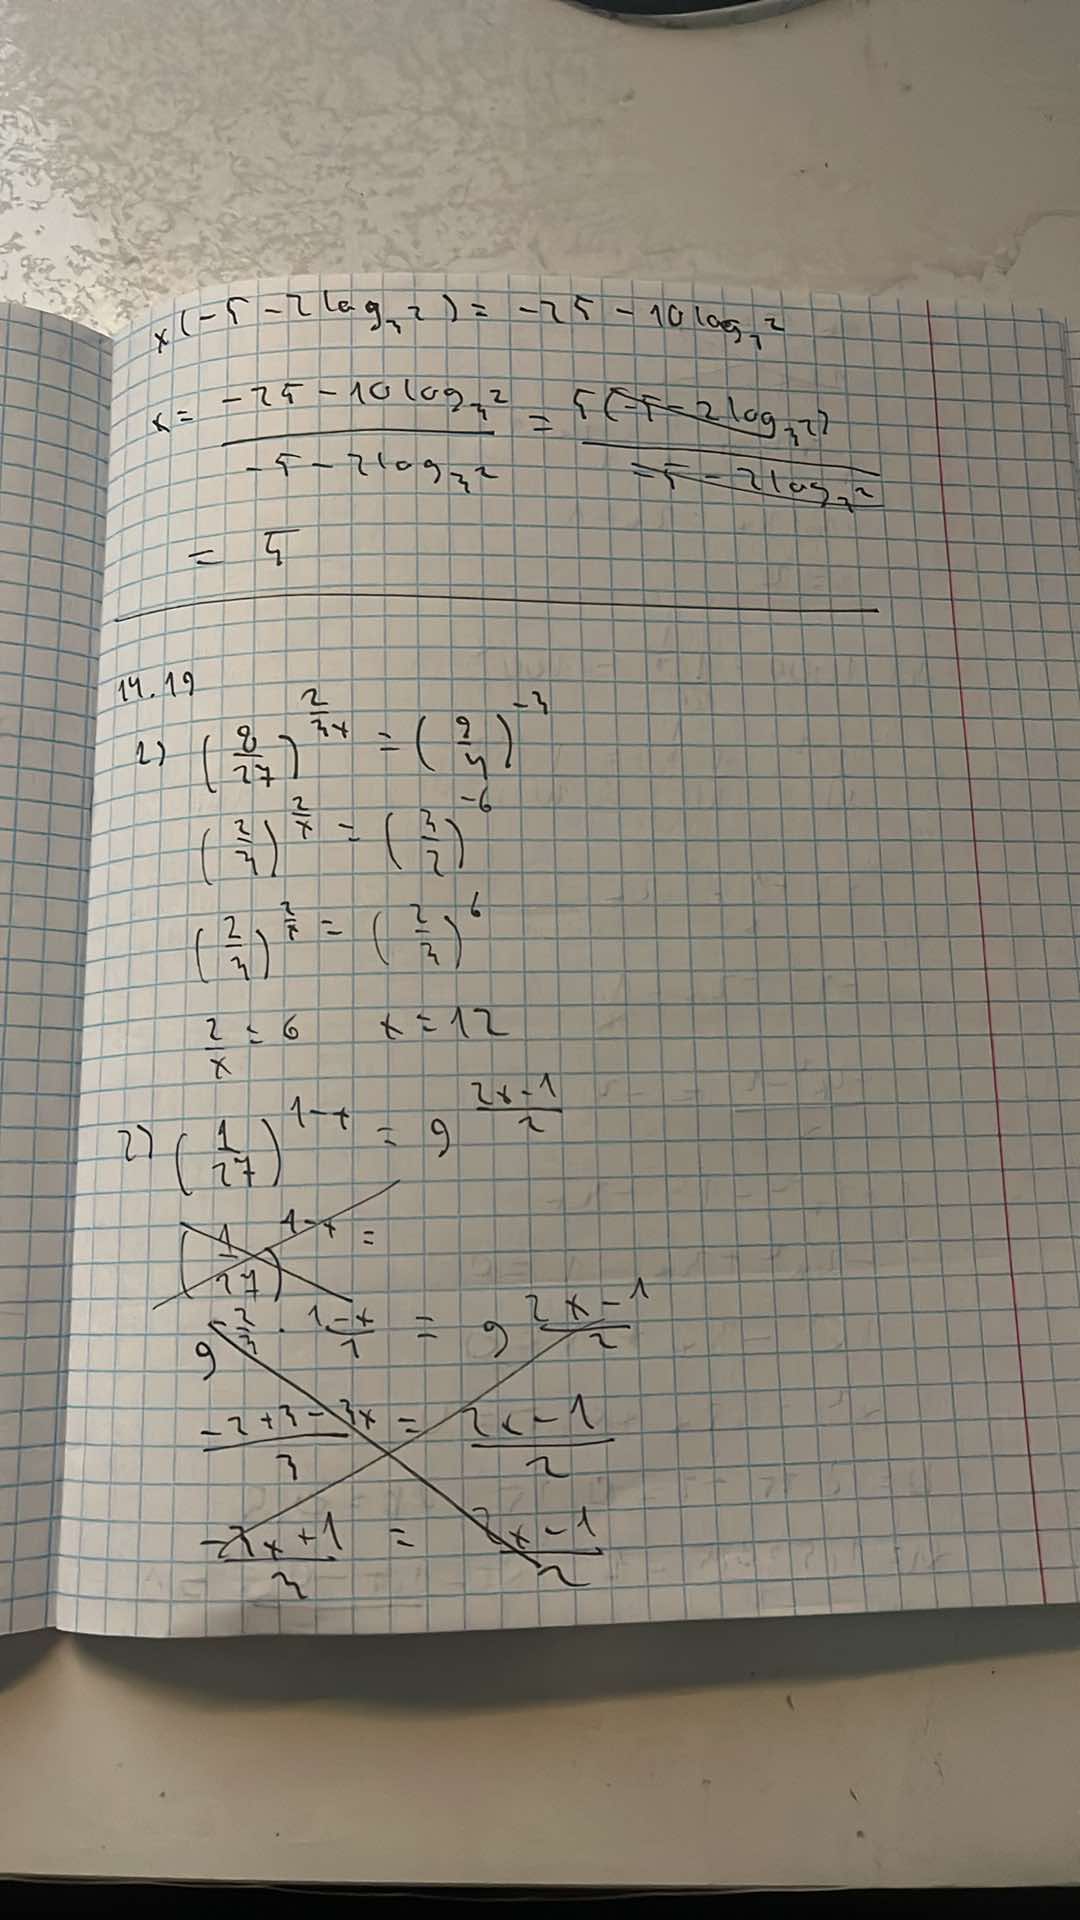 x(-5-2log₃2) = -25-10log₃2
x = (-25-10log₃2)/(-5-2log₃2) = 5(-5-2log₃2)/(-5-2log₃2)
= 5
14.19
1) (8/27)^(2/3x) = (9/4)^(-3)
(2/3)^(2/x) = (3/2)^(-6)
(2/3)^(2/x) = (2/3)^6
2/x = 6 x = 12
2) (1/27)^(1-x) = 9^((2x-1)/2)
(1/27)^(1-x) =
9^(-2/3 · (1-x)/1) = 9^((2x-1)/2)
(-2+3-3x)/3 = (2x-1)/2
(-3x+1)/3 = (2x-1)/2